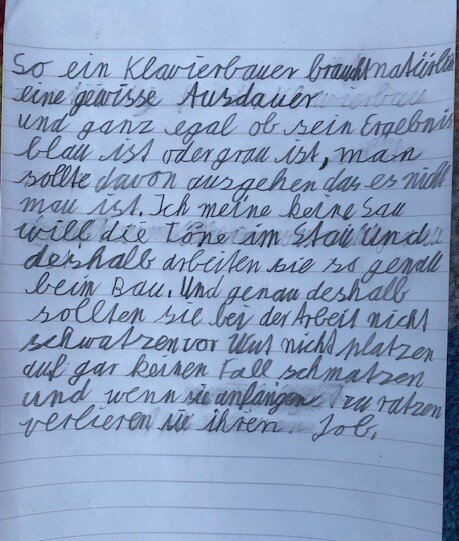 So ein Klavierbauer braucht natürlich
eine gewisse Ausdauer
und ganz egal ob sein Ergebnis
blau ist oder grau ist, man
sollte davon ausgehen das es nicht
mau ist. Ich meine keine Sau
will die Töne im Stau und
deshalb arbeiten sie so genau
beim Bau. Und genau deshalb
sollten sie bei der Arbeit nicht
schwatzen vor Wut nicht platzen
auf gar keinen Fall schmatzen
und wenn sie anfangen zu ratzen
verlieren sie ihren Job.